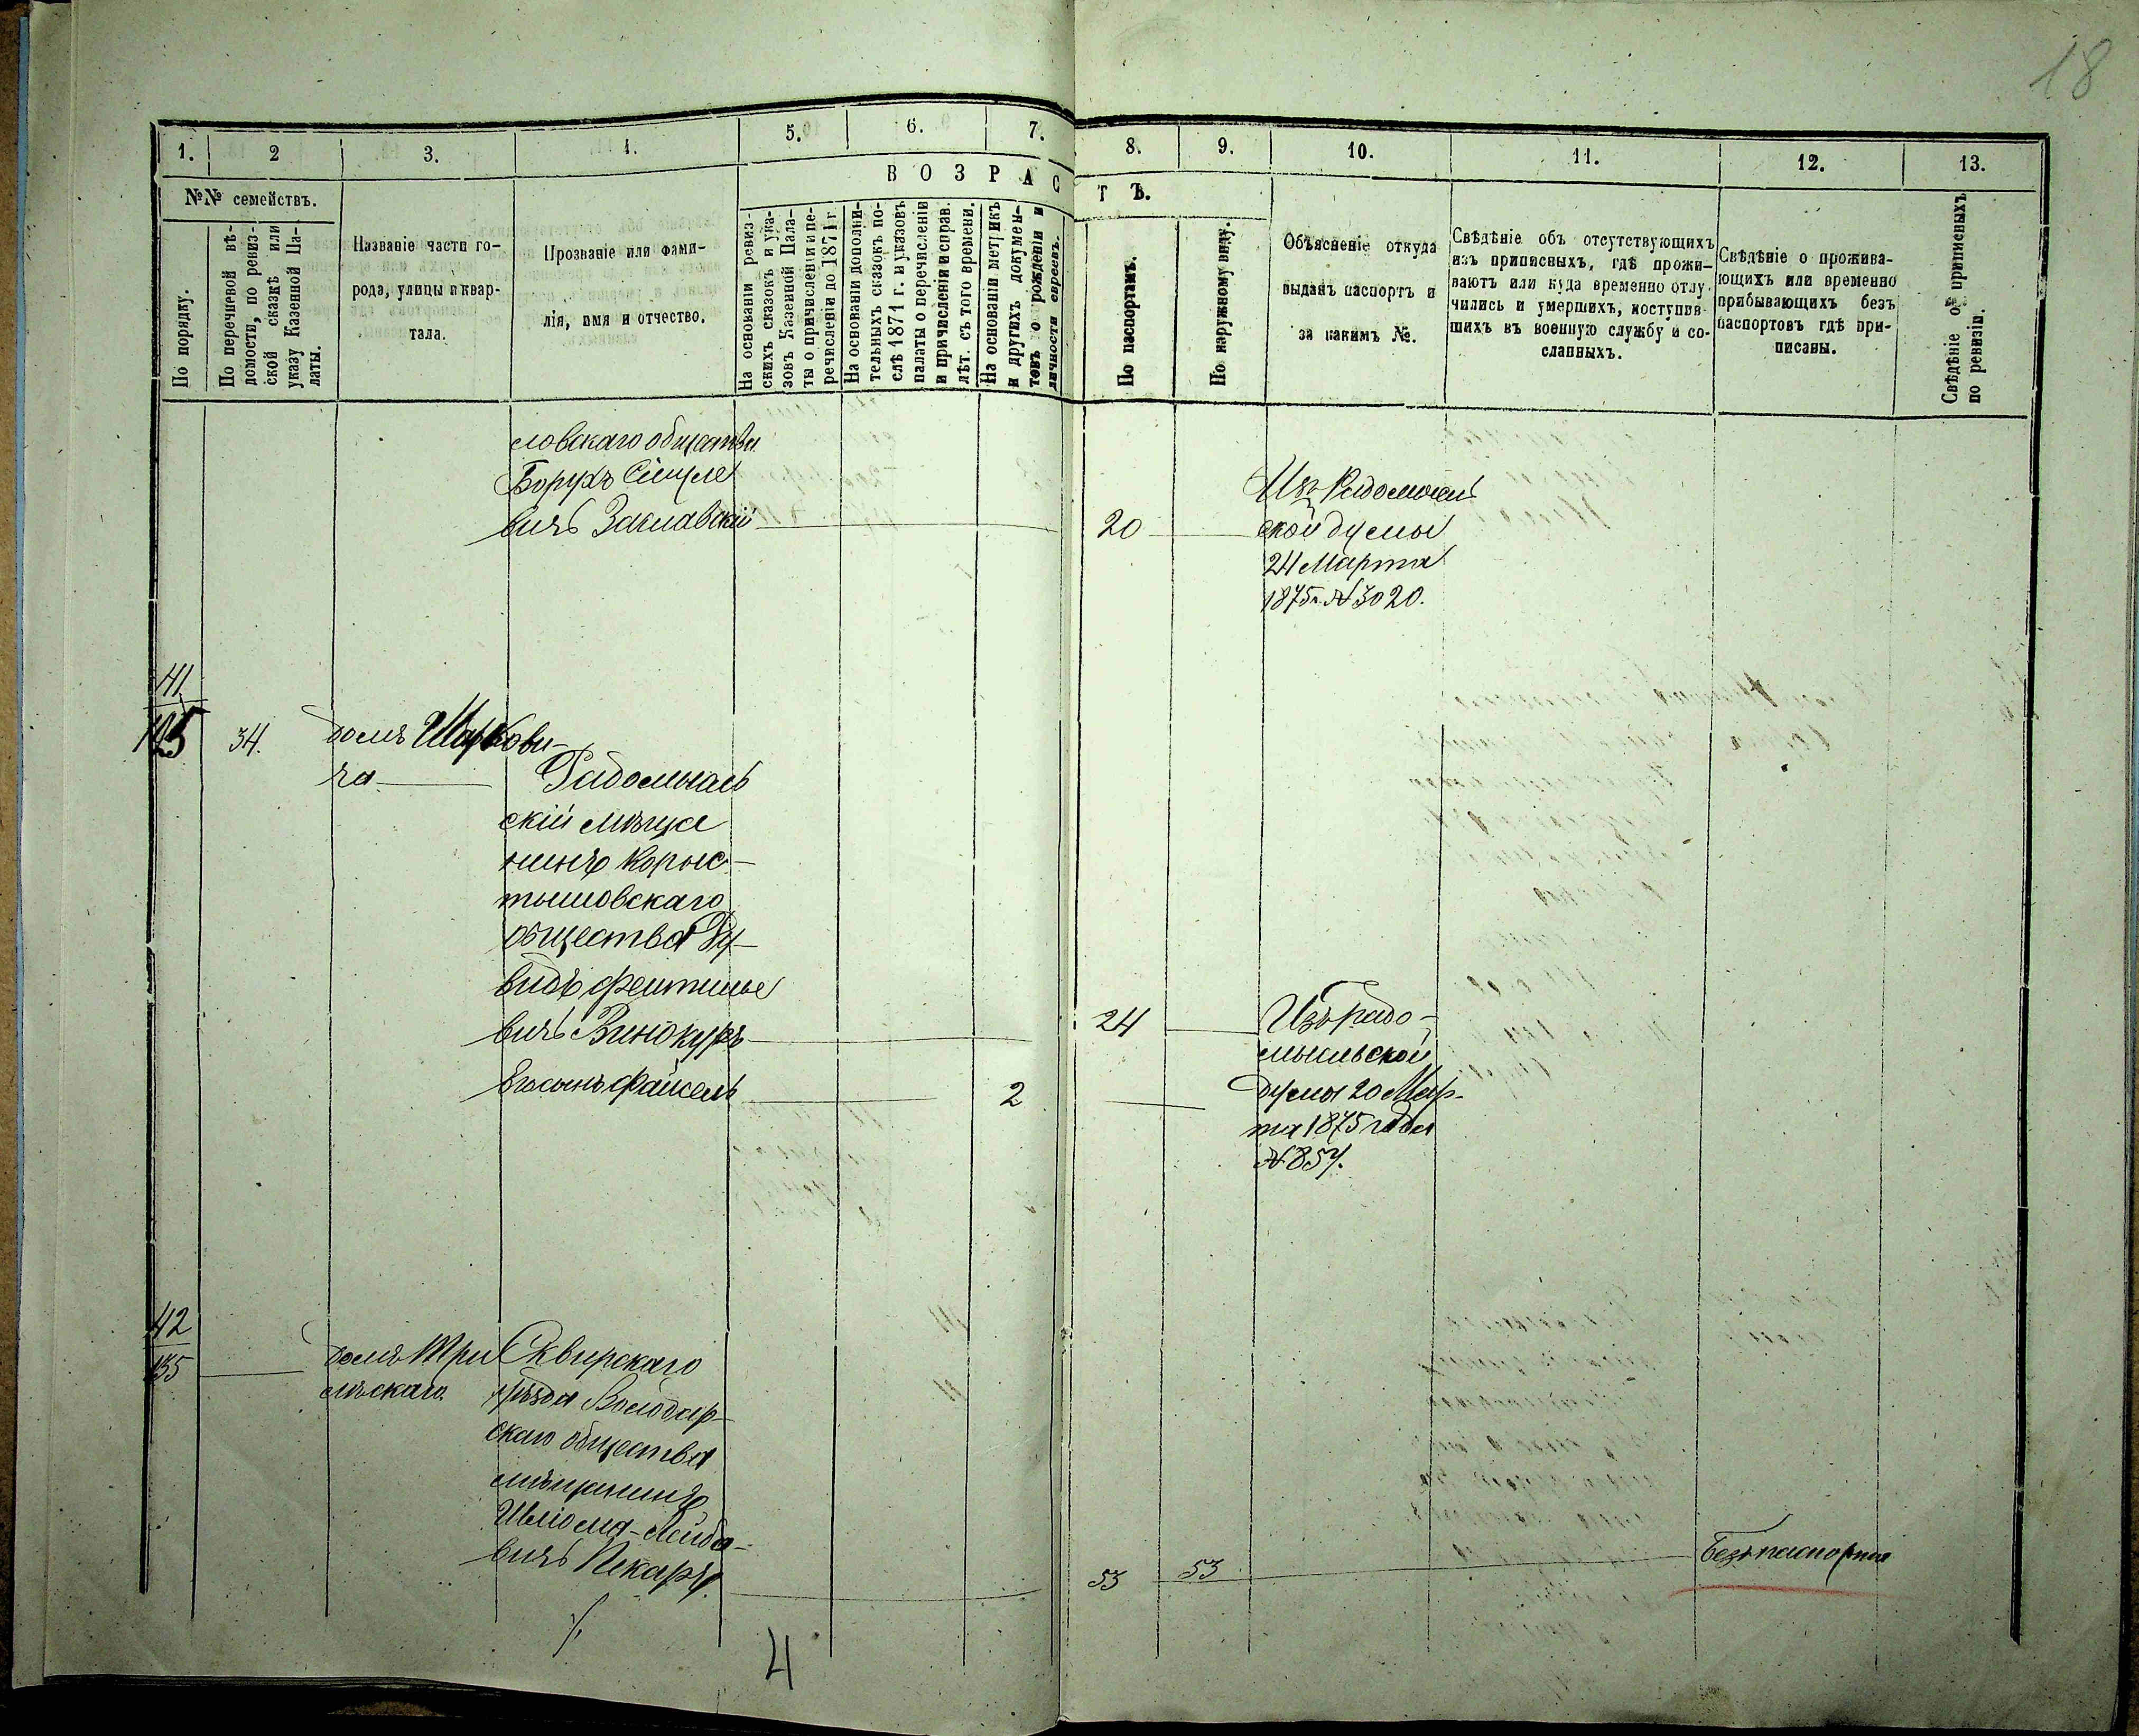 18
1. 2 3. 4. 5. 6. 7. 8. 9. 10. 11. 12. 13.
№№ семействъ.
В О З Р А С Т Ъ.
По порядку.
По перечневой вѣ-
домости, по ревиз-
ской сказкѣ или
указу Казенной Па-
латы.
Названіе части го-
рода, улицы и квар-
тала.
Прозваніе или фами-
лія, имя и отчество.
На основаніи ревиз-
скихъ сказокъ и ука-
зовъ Казенной Пала-
ты о причисленіи и пе-
речисленіи до 1871 г.
На основаніи дополни-
тельныхъ сказокъ по-
слѣ 1871 г. и указовъ
палаты о перечисленіи
и причисленіи и справ.
лѣт. съ того времени.
На основаніи метрикъ
и другихъ докумен-
товъ о рожденіи и
личности евреевъ.
По паспортамъ.
По наружному виду.
Объясненіе откуда
выданъ паспортъ и
за какимъ №.
Свѣдѣніе объ отсутствующихъ
изъ приписныхъ, гдѣ прожи-
ваютъ или куда временно отлу-
чились и умершихъ, поступив-
шихъ въ военную службу и со-
сланныхъ.
Свѣдѣніе о прожива-
ющихъ или временно
прибывающихъ безъ
паспортовъ гдѣ при-
писаны.
Свѣдѣніе о приписныхъ
по ревизіи.
ловскаго общества
Борухъ
вичъ Заславскій 20
Изъ Радомысль
ской думы
24 Марта
1875 г. № 3020.
41
34. домъ
ча Радомысль
скій мѣща
нинъ Корыс-
тышовскаго
общества Ду-
видъ
вичъ Винокуръ 24 Изъ Радо-
мысльской
Его сынъ Файсель 2 думы 20 Мар-
та 1875 года
№ 857.
42
135 домъ Три Сквирскаго
лѣскаго. уѣзда Володар-
скаго общества
мѣщанинъ
Шліома-Лейбо-
вичъ Пекарь. 53 53 Безъ паспорта
4